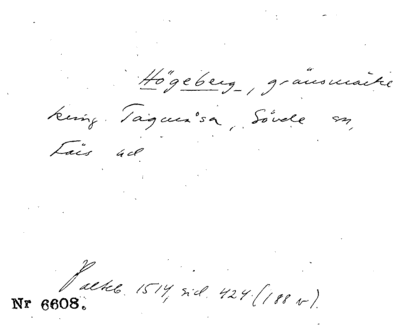 Högeberg, gränsmärke
kring Tågmåsa, Sövde sn,
Färs hd
Palteb. 1514, sid. 424 (188 v).
Nr 6608.